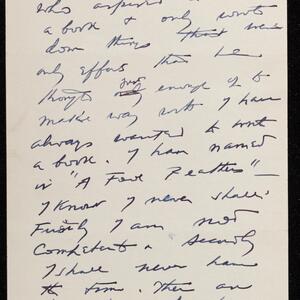 who aspired
a book & only wrote
down things that were
only efforts that he
thought just enough of to
make way with I have
always wanted to write
a book. I have named
it "A Few Feathers" —
I know I never shall.
Firstly I am not
competent & secondly
I shall never have
the time. Then an